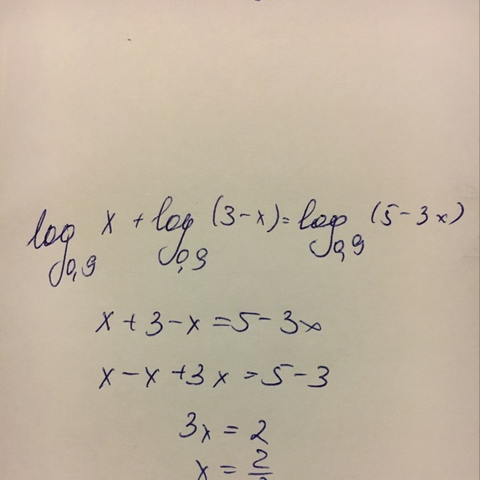 log₀,₉ x + log₀,₉ (3-x) = log₀,₉ (5-3x)
x + 3 - x = 5 - 3x
x - x + 3x = 5 - 3
3x = 2
x = 2